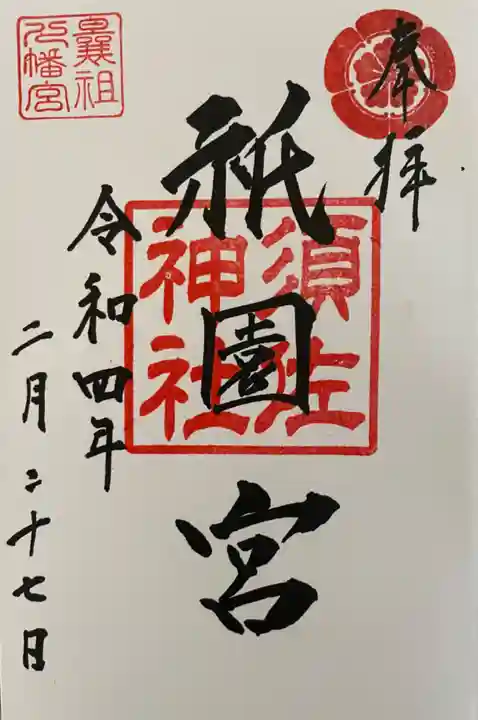 奉拝
須佐
神社
祇園宮
令和四年
二月二十七日
曩祖
八幡宮